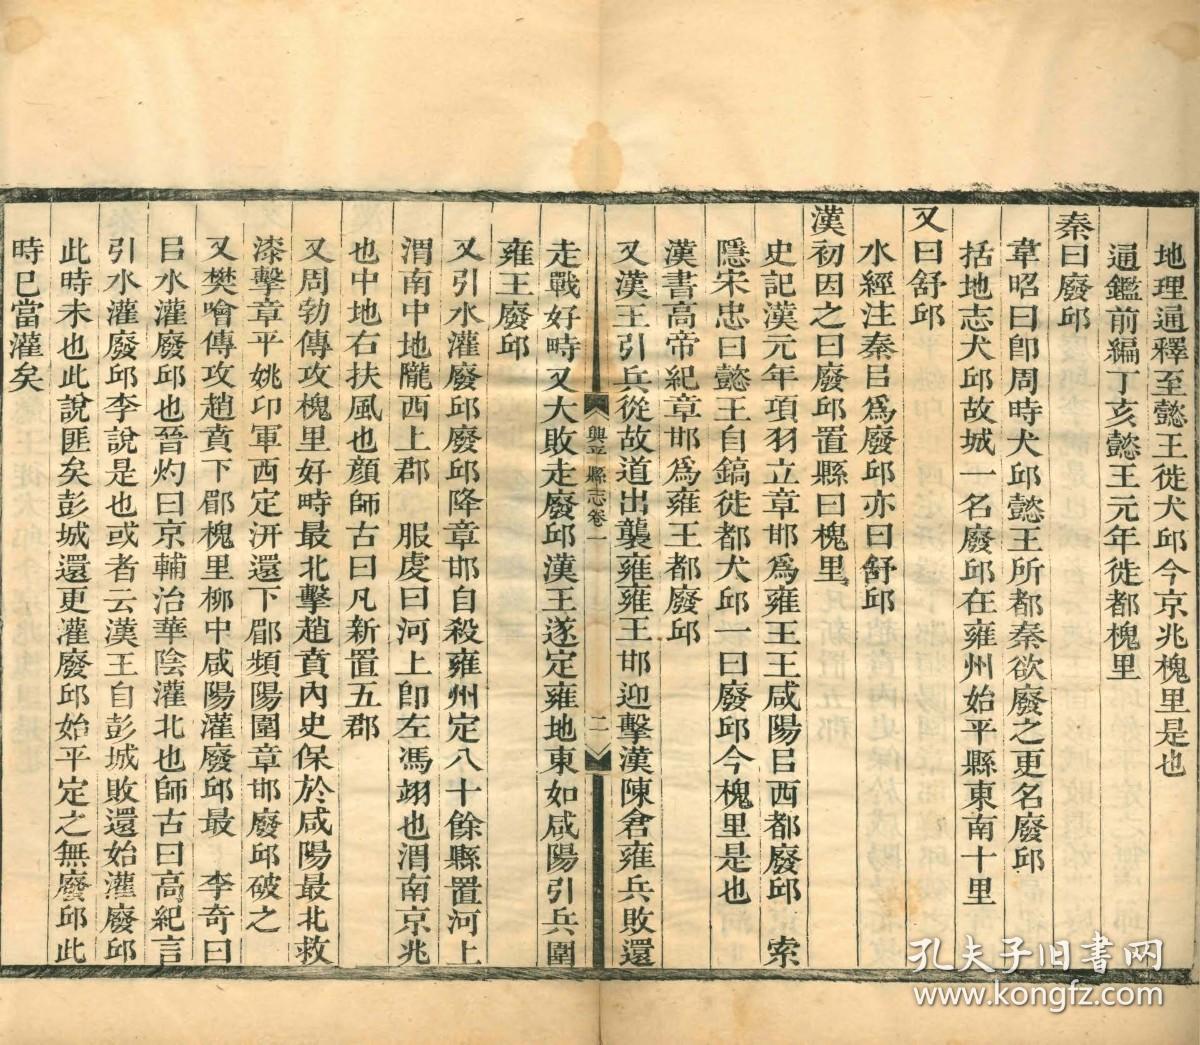 地理通釋至懿王徙犬邱今京兆槐里是也
通鑑前編丁亥懿王元年徙都槐里
秦曰廢邱
韋昭曰卽周時犬邱懿王所都秦欲廢之更名廢邱
括地志犬邱故城一名廢邱在雍州始平縣東南十里
又曰舒邱
水經注秦㠯爲廢邱亦曰舒邱
漢初因之曰廢邱置縣曰槐里
史記漢元年項羽立章邯爲雍王王咸陽㠯西都廢邱 索
隱宋忠曰懿王自鎬徙都犬邱一曰廢邱今槐里是也
漢書高帝紀章邯爲雍王都廢邱
又漢王引兵從故道出襲雍雍王邯迎擊漢陳倉雍兵敗還
興平縣志卷一
二
走戰好畤又大敗走廢邱漢王遂定雍地東如咸陽引兵圍
雍王廢邱
又引水灌廢邱廢邱降章邯自殺雍州定八十餘縣置河上
渭南中地隴西上郡 服虔曰河上卽左馮翊也渭南京兆
也中地右扶風也顏師古曰凡新置五郡
又周勃傳攻槐里好畤最北擊趙賁內史保於咸陽最北救
漆擊章平姚卬軍西定汧還下郿頻陽圍章邯廢邱破之
又樊噲傳攻趙賁下郿槐里柳中咸陽灌廢邱最 李奇曰
㠯水灌廢邱也晉灼曰京輔治華陰灌北也師古曰高紀言
引水灌廢邱李說是也或者云漢王自彭城敗還始灌廢邱
此時未也此說匪矣彭城還更灌廢邱始平定之無廢邱此
時已當灌矣
孔夫子旧书网
www.kongfz.com